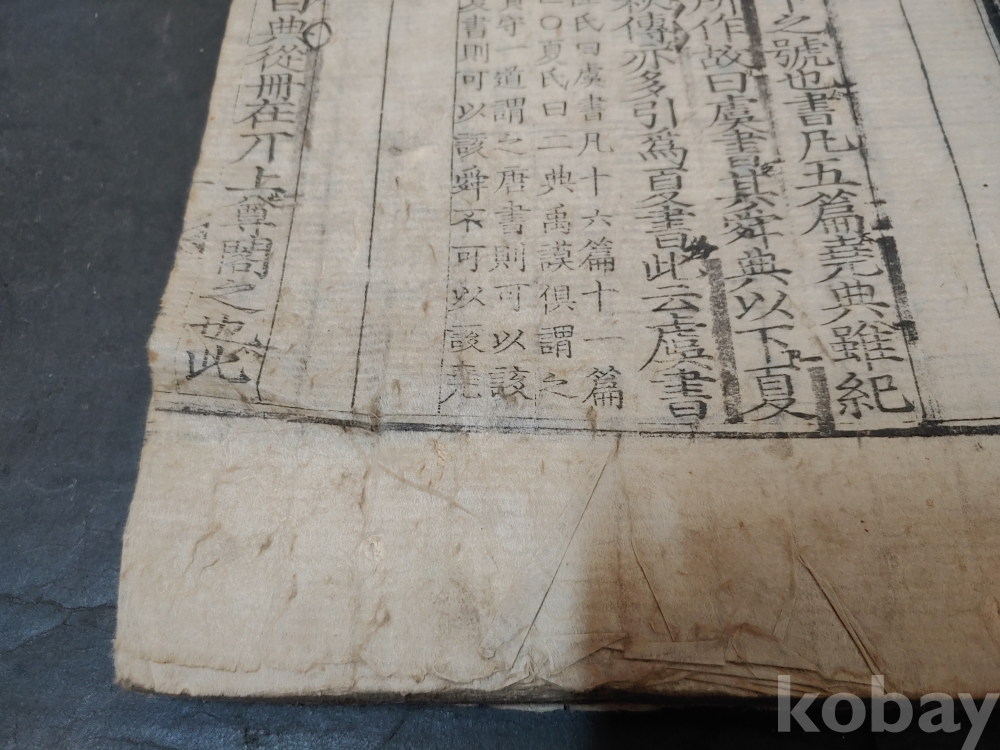 之號也書凡五篇堯典雖紀
所作故曰虞書其舜典以下夏
秋傳亦多引爲夏書此云虞書
氏曰虞書凡十六篇十一篇
〇夏氏曰二典禹謨俱謂之
守一道謂之唐書則可以該
書則可以該舜不可以該堯
典從冊在丌上尊閣之也此
kobay